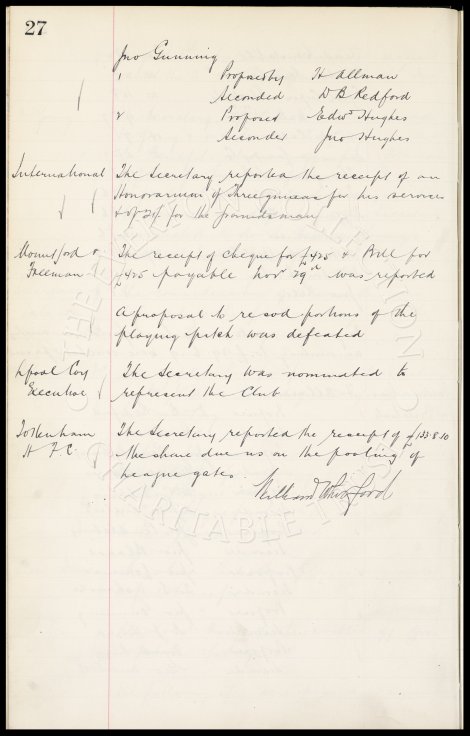 27
Jno Gunning
1 Proposed by H Allman
Seconded D B Redford
2 Proposed Edwd Hughes
Seconder Jno Hughes
International The Secretary reported the receipt of an
Honorarium of Three guineas for his services
& of 20/- for the groundsman
Mountford & The receipt of cheque for £425 & Bill for
Freeman £425 payable Novr 29th was reported
A proposal to resod portions of the
playing pitch was defeated
Lpool Coy The Secretary was nominated to
Executive represent the Club
Tottenham The Secretary reported the receipt of £133.8.10
H F C the share due us on the pooling of
League gates.
THE EVERTON COLLECTION
CHARITABLE TRUST